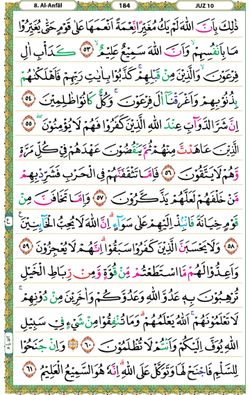 8. Al-Anfāl 184 JUZ 10
ذَٰلِكَ بِأَنَّ اللَّهَ لَمْ يَكُ مُغَيِّرًا نِّعْمَةً أَنْعَمَهَا عَلَىٰ قَوْمٍ حَتَّىٰ يُغَيِّرُوا
مَا بِأَنفُسِهِمْ وَأَنَّ اللَّهَ سَمِيعٌ عَلِيمٌ ٥٣ كَدَأْبِ آلِ
فِرْعَوْنَ وَالَّذِينَ مِن قَبْلِهِمْ كَذَّبُوا بِآيَٰتِ رَبِّهِمْ فَأَهْلَكْنَٰهُم
بِذُنُوبِهِمْ وَأَغْرَقْنَا آلَ فِرْعَوْنَ وَكُلٌّ كَانُوا ظَٰلِمِينَ ٥٤
إِنَّ شَرَّ الدَّوَابِّ عِندَ اللَّهِ الَّذِينَ كَفَرُوا فَهُمْ لَا يُؤْمِنُونَ ٥٥
الَّذِينَ عَٰهَدتَّ مِنْهُمْ ثُمَّ يَنقُضُونَ عَهْدَهُمْ فِي كُلِّ مَرَّةٍ
وَهُمْ لَا يَتَّقُونَ ٥٦ فَإِمَّا تَثْقَفَنَّهُمْ فِي الْحَرْبِ فَشَرِّدْ بِهِم
مَّنْ خَلْفَهُمْ لَعَلَّهُمْ يَذَّكَّرُونَ ٥٧ وَإِمَّا تَخَافَنَّ مِن
قَوْمٍ خِيَانَةً فَانبِذْ إِلَيْهِمْ عَلَىٰ سَوَاءٍ إِنَّ اللَّهَ لَا يُحِبُّ الْخَائِنِينَ ٥٨
وَلَا يَحْسَبَنَّ الَّذِينَ كَفَرُوا سَبَقُوا إِنَّهُمْ لَا يُعْجِزُونَ ٥٩
وَأَعِدُّوا لَهُم مَّا اسْتَطَعْتُم مِّن قُوَّةٍ وَمِن رِّبَاطِ الْخَيْلِ
تُرْهِبُونَ بِهِ عَدُوَّ اللَّهِ وَعَدُوَّكُمْ وَآخَرِينَ مِن دُونِهِمْ
لَا تَعْلَمُونَهُمُ اللَّهُ يَعْلَمُهُمْ وَمَا تُنفِقُوا مِن شَيْءٍ فِي سَبِيلِ
اللَّهِ يُوَفَّ إِلَيْكُمْ وَأَنتُمْ لَا تُظْلَمُونَ ٦٠ وَإِن جَنَحُوا
لِلسَّلْمِ فَاجْنَحْ لَهَا وَتَوَكَّلْ عَلَى اللَّهِ إِنَّهُ هُوَ السَّمِيعُ الْعَلِيمُ ٦١